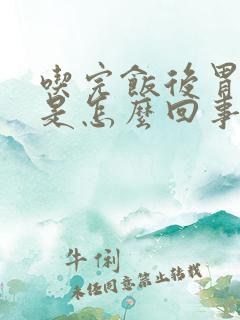 喫完飯後胃
是怎麼回事
牛俐
未经同意禁止转载